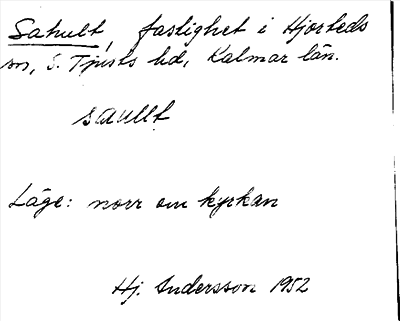 Sahult, fastighet i Hjorteds
sn, S. Tjusts hd, Kalmar län.
saullt
Läge: norr om kyrkan
Hj. Andersson 1952